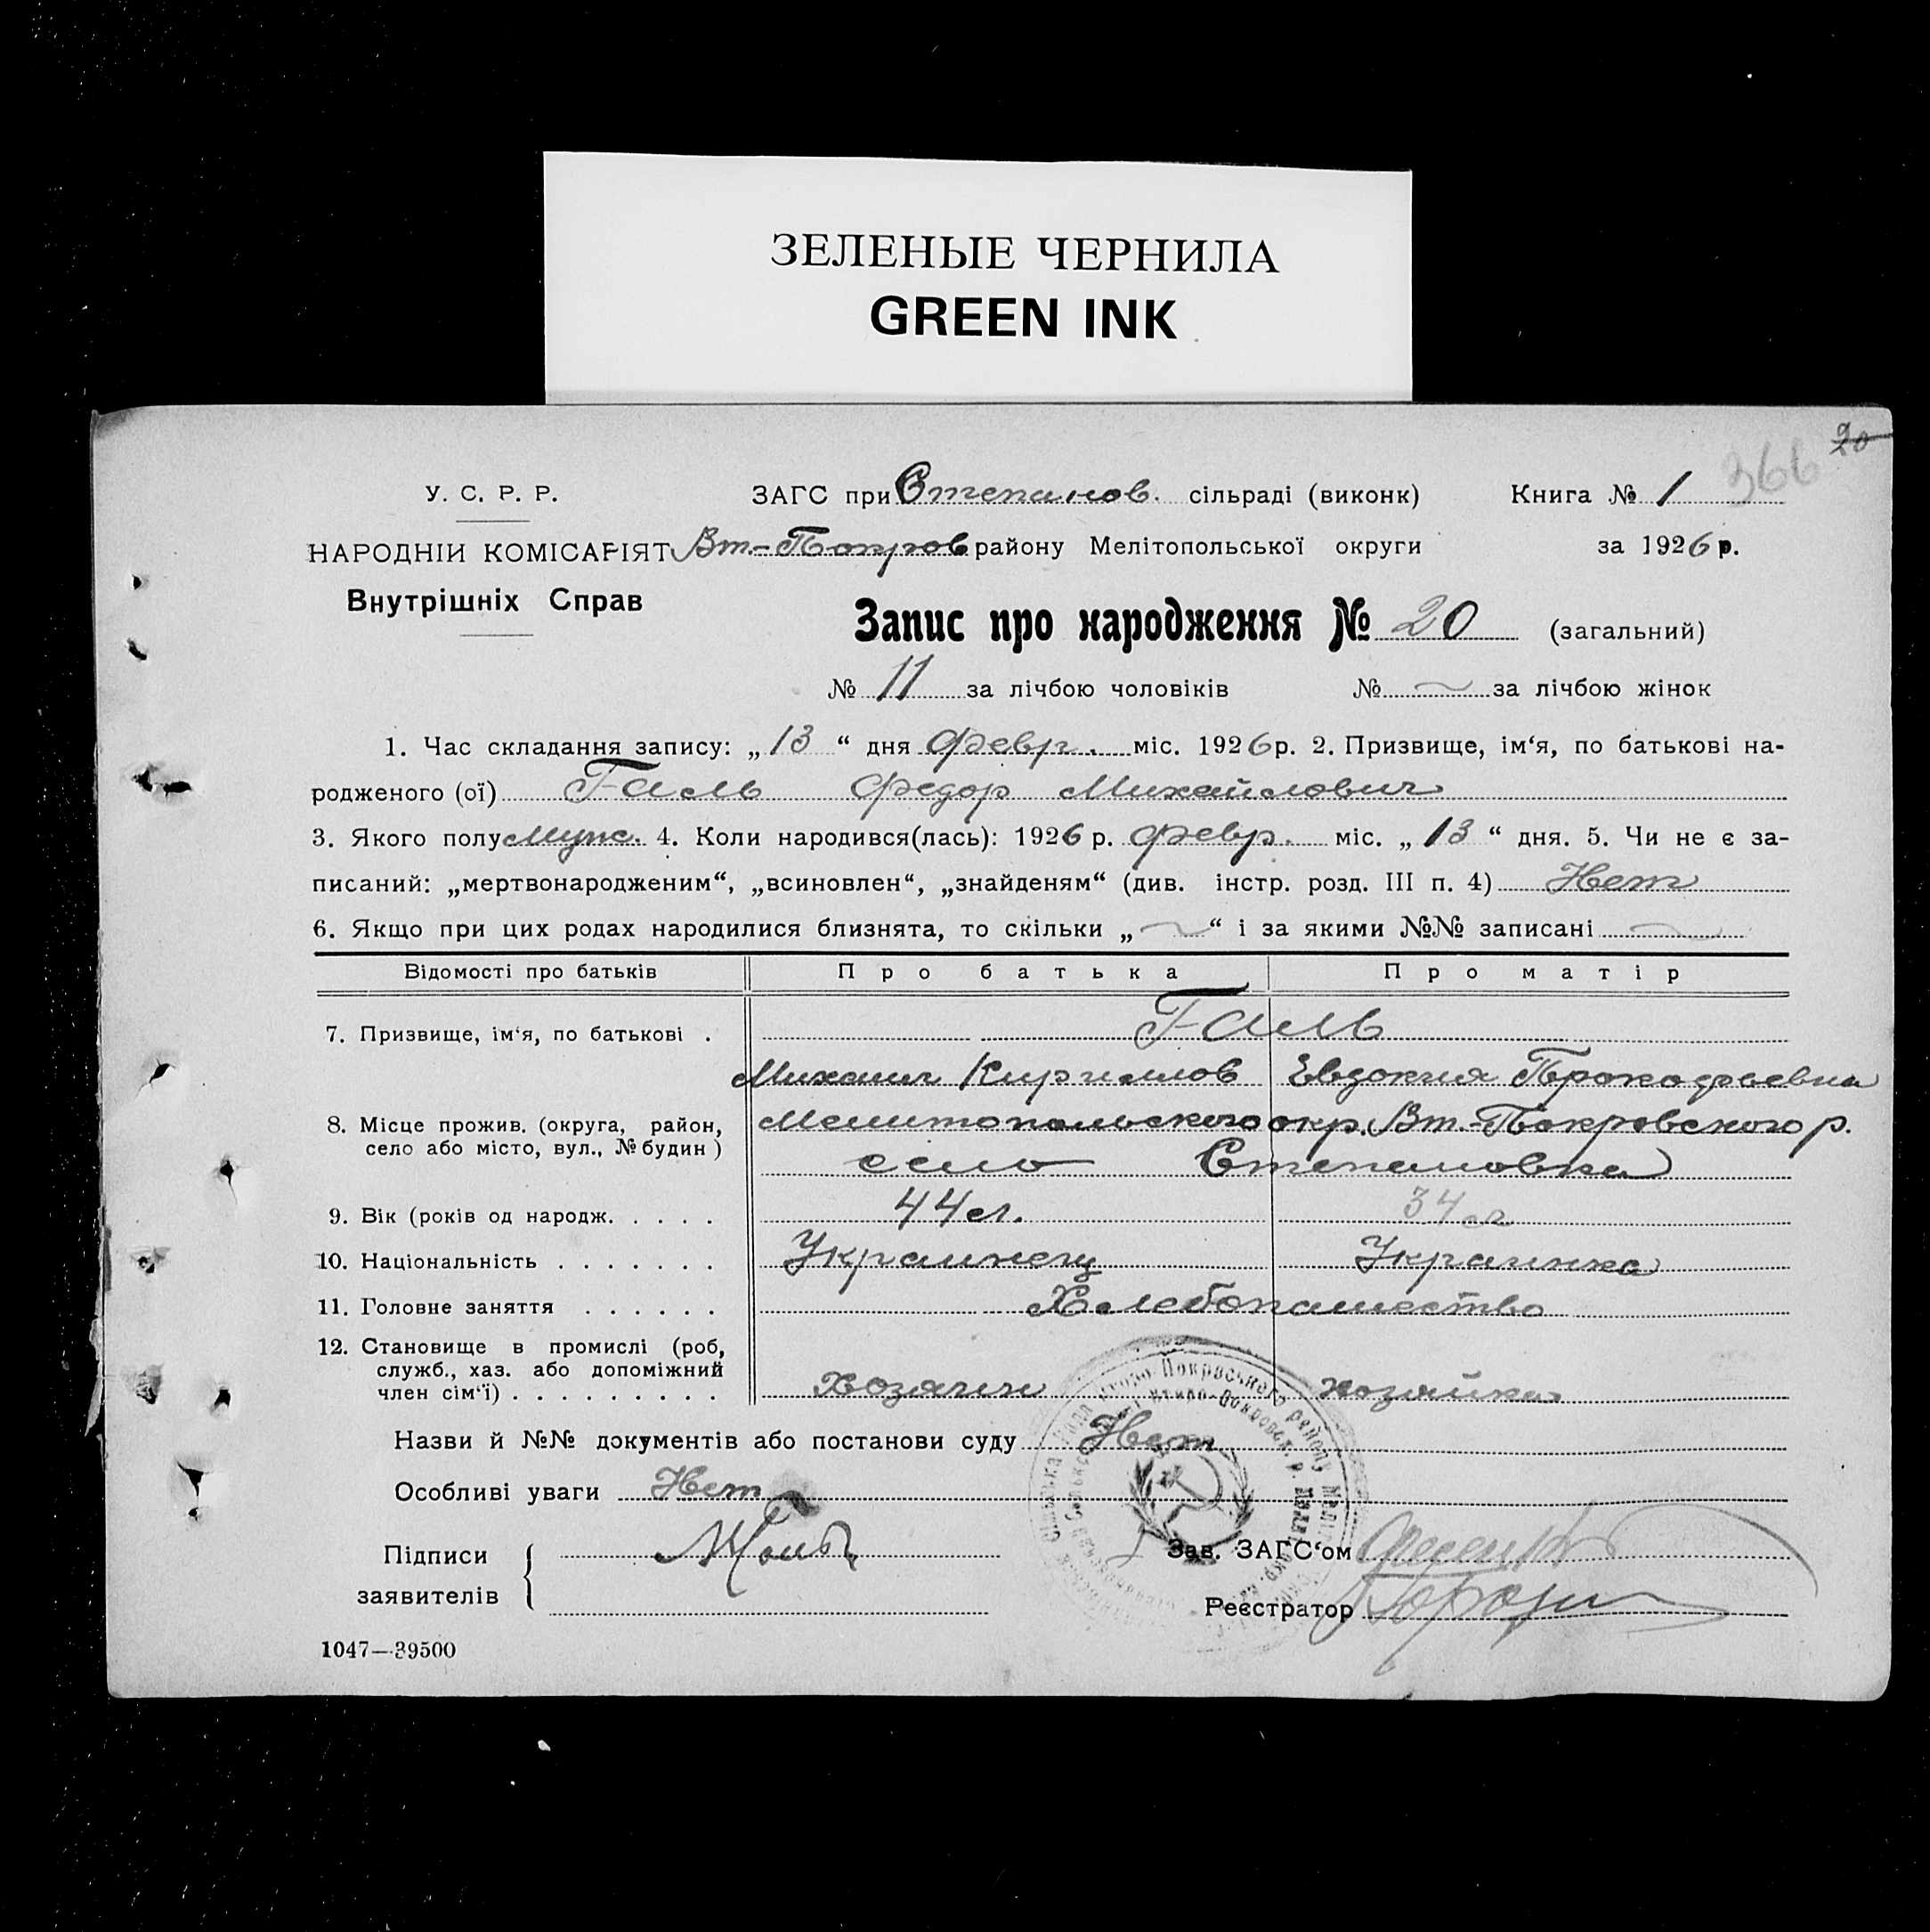 ЗЕЛЕНЫЕ ЧЕРНИЛА
GREEN INK
20
366
У. С. Р. Р. ЗАГС при Степанов. сільраді (виконк) Книга № 1
НАРОДНІЙ КОМІСАРІЯТ Вт.-Покров району Мелітопольської округи за 1926 р.
Внутрішніх Справ
Запис про народження № 20 (загальний)
№ 11 за лічбою чоловіків № за лічбою жінок
1. Час складання запису: „13“ дня Февр. міс. 1926 р. 2. Призвище, ім‘я, по батькові на-
родженого (ої) Галь Федор Михайлович
3. Якого полу Муж. 4. Коли народився(лась): 1926 р. Февр. міс. „13“ дня. 5. Чи не є за-
писаний: „мертвонародженим“, „всиновлен“, „знайденям“ (див. інстр. розд. III п. 4) Нет
6. Якщо при цих родах народилися близнята, то скільки „ “ і за якими №№ записані
Відомості про батьків Про батька Про матір
7. Призвище, ім‘я, по батькові . Галь
Михаил Кириллов Евдокия Прокофьевна
8. Місце прожив. (округа, район, Мелитопольского окр. Вт.-Покровского р.
село або місто, вул., № будин ) село Степановка
9. Вік (років од народж. . . . . 44 л. 34 л
10. Національність . . . . . . . Украинец Украинка
11. Головне заняття . . . . . . Хлебопашество
12. Становище в промислі (роб,
служб., хаз. або допоміжний
член сім‘ї) . . . . . . . . . Хозяин хозяйка
Назви й №№ документів або постанови суду Нет
Особливі уваги Нет
Підписи М Галь Зав. ЗАГС‘ом
заявителів Реєстратор
1047—39500